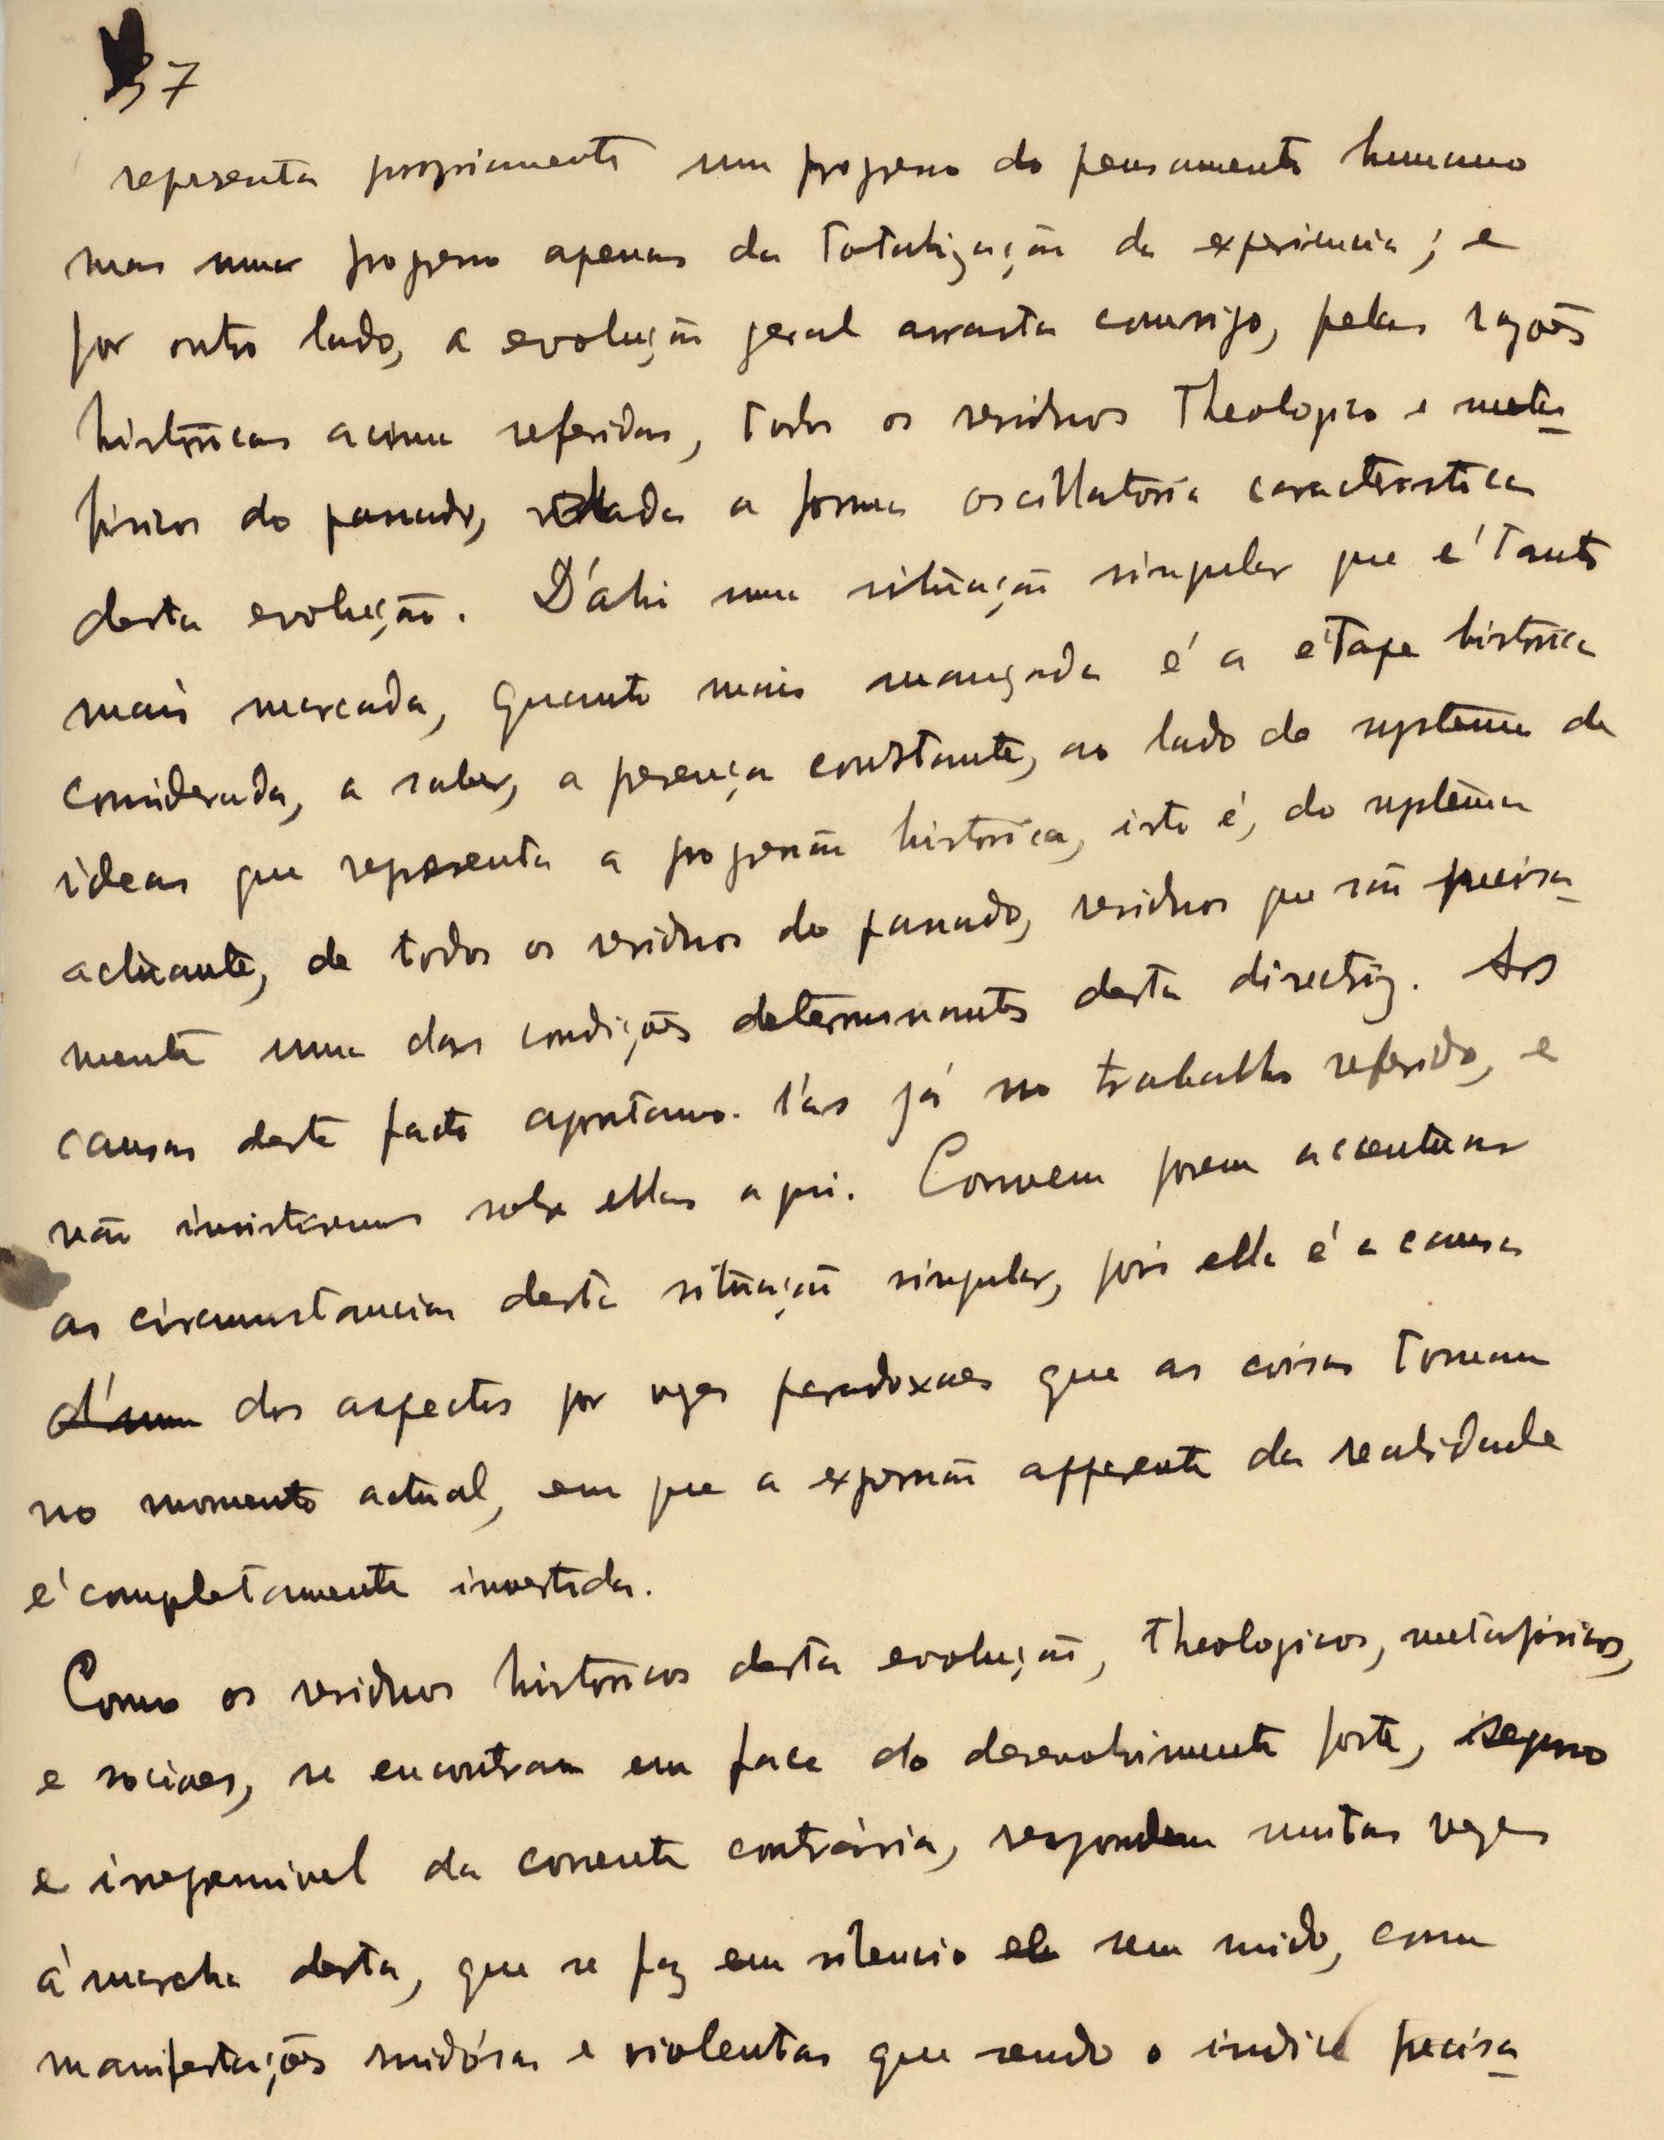 37
representa propriamente um progresso do pensamento humano
mas um progresso apenas da totalização da experiencia; e
por outro lado, a evolução geral arrasta comsigo, pelas razões
históricas acima referidas, todos os residuos theologicos e meta-
fisicos do passado, dada a forma oscillatoria caracteristica
desta evolução. D'ahi uma situação singular que é tanto
mais marcada, quanto mais avançada é a étape histórica
considerada, a saber, a presença constante, ao lado do systema de
ideas que representa a progressão histórica, isto é, do systema
actuante, de todos os residuos do passado, residuos que são precisa-
mente uma das condições determinantes desta directriz. As
causas deste facto apontamo-l'as já no trabalho referido, e
não insistiremos sobre ellas aqui. Convem porem accentuar
as circumstancias desta situação singular, pois ella é a causa
d'um dos aspectos por vezes paradoxaes que as coisas tomam
no momento actual, em que a expressão apparente da realidade
é completamente invertida.
Como os residuos históricos desta evolução, theologicos, metafisicos,
e sociaes, se encontram em face do desenvolvimento forte, seguro
e irrepremivel da corrente contrária, respondem muitas vezes
á marcha desta, que se faz em silencio e sem ruido, com
manifestações ruidósas e violentas que sendo o indice precisa-